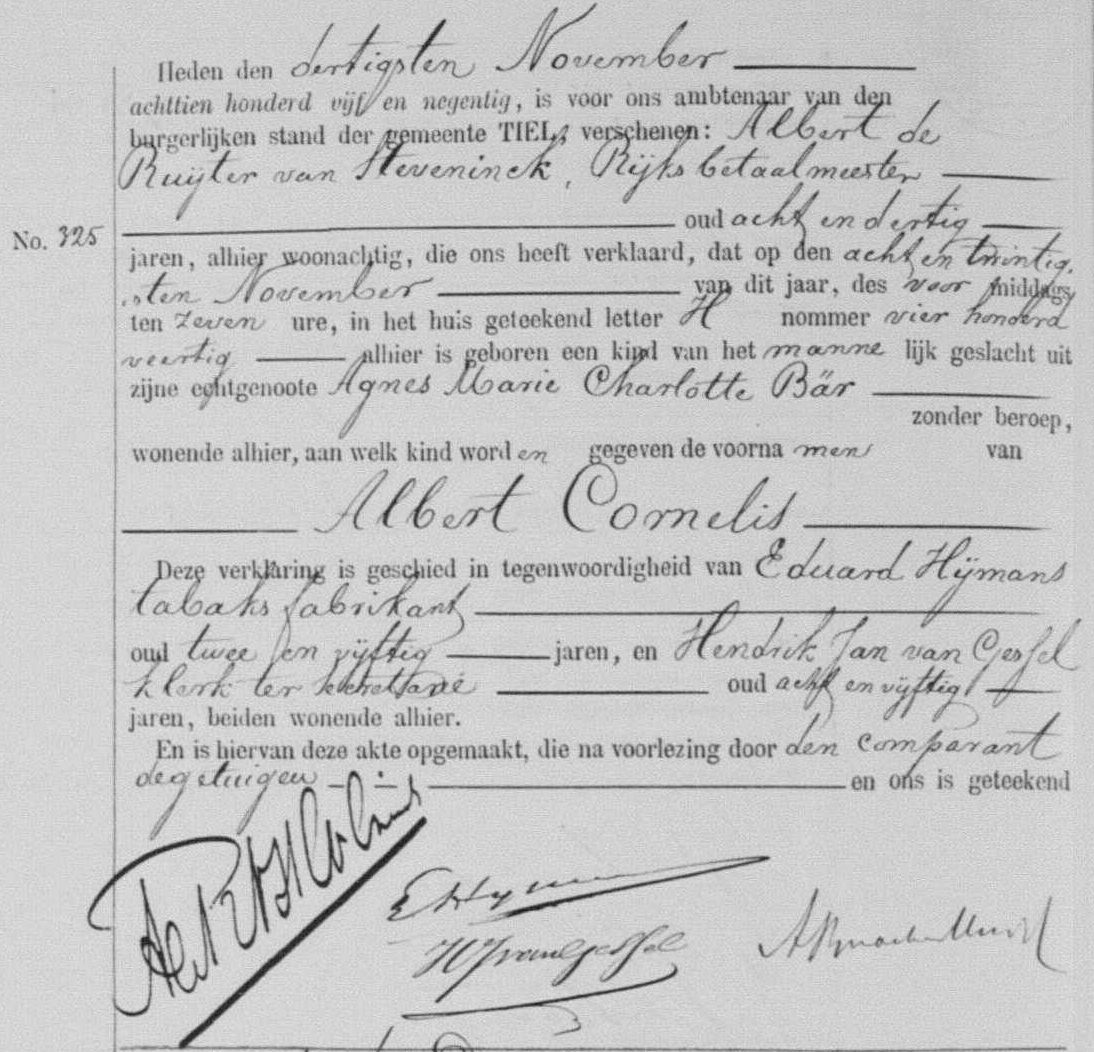 Heden den dertigsten November
achttien honderd vijf en negentig, is voor ons ambtenaar van den
burgerlijken stand der gemeente TIEL, verschenen: Albert de
Ruijter van Steveninck, Rijksbetaalmeester
oud acht en dertig
No. 325
jaren, alhier woonachtig, die ons heeft verklaard, dat op den acht en twintig
sten November van dit jaar, des voor middags
ten zeven ure, in het huis geteekend letter H nommer vier honderd
veertig alhier is geboren een kind van het manne lijk geslacht uit
zijne echtgenoote Agnes Marie Charlotte Bär
zonder beroep,
wonende alhier, aan welk kind word en gegeven de voorna men van
Albert Cornelis
Deze verklaring is geschied in tegenwoordigheid van Eduard Hijmans
tabaksfabrikant
oud twee en vijftig jaren, en Hendrik Jan van Gessel
klerk ter secretarie oud acht en vijftig
jaren, beiden wonende alhier.
En is hiervan deze akte opgemaakt, die na voorlezing door den comparant
de getuigen en ons is geteekend
HJvanGessel